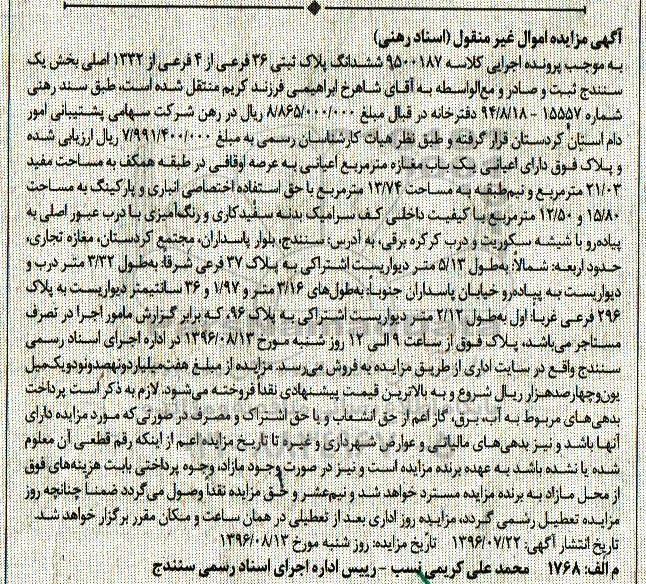 آگهی مزایده اموال غیر منقول (اسناد رهنی)
به موجب پرونده اجرایی کلاسه ۹۵۰۰۱۸۷ ششدانگ پلاک ثبتی ۳۶ فرعی از ۴ فرعی از ۱۳۳۲ اصلی بخش یک
سنندج ثبت و صادر و مع‌الواسطه به آقای شاهرخ ابراهیمی فرزند کریم منتقل شده است، طبق سند رهنی
شماره ۱۵۵۵۷ – ۹۴/۸/۱۸ دفترخانه در قبال مبلغ ۸/۸۶۵/۰۰۰/۰۰۰ ریال در رهن شرکت سهامی پشتیبانی امور
دام استان کردستان قرار گرفته و طبق نظر هیات کارشناسان رسمی به مبلغ ۷/۹۹۱/۴۰۰/۰۰۰ ریال ارزیابی شده
و پلاک فوق دارای اعیانی یک باب مغازه مترمربع اعیانی به عرصه اوقافی در طبقه همکف به مساحت مفید
۲۱/۰۳ مترمربع و نیم‌طبقه به مساحت ۱۳/۷۴ مترمربع با حق استفاده اختصاصی انباری و پارکینگ به مساحت
۱۵/۸۰ و ۱۲/۵۰ مترمربع با کیفیت داخلی کف سرامیک بدنه سفیدکاری و رنگ‌آمیزی با درب عبور اصلی به
پیاده‌رو با شیشه سکوریت و درب کرکره برقی، به آدرس: سنندج، بلوار پاسداران، مجتمع کردستان، مغازه تجاری،
حدود اربعه: شمالاً: به‌طول ۵/۱۳ متر دیواریست اشتراکی به پلاک ۳۷ فرعی شرقا: به‌طول ۳/۳۲ متر درب و
دیواریست به پیاده‌رو خیابان پاسداران جنوبا: به‌طول‌های ۳/۱۶ متر و ۱/۹۷ و ۳۶ سانتیمتر دیواریست به پلاک
۲۹۶ فرعی غربا: اول به‌طول ۲/۱۲ متر دیواریست اشتراکی به پلاک ۹۶، که برابر گزارش مامور اجرا در تصرف
مستاجر می‌باشد، پلاک فوق از ساعت ۹ الی ۱۲ روز شنبه مورخ ۱۳۹۶/۰۸/۱۳ در اداره اجرای اسناد رسمی
سنندج واقع در سایت اداری از طریق مزایده به فروش می‌رسد. مزایده از مبلغ هفت‌میلیاردونهصدونودویک‌میل
یون‌وچهارصدهزار ریال شروع و به بالاترین قیمت پیشنهادی نقداً فروخته می‌شود. لازم به ذکر است پرداخت
بدهی‌های مربوط به آب، برق، گاز اعم از حق انشعاب و یا حق اشتراک و مصرف در صورتی که مورد مزایده دارای
آنها باشد و نیز بدهی‌های مالیاتی و عوارض شهرداری و غیره تا تاریخ مزایده اعم از اینکه رقم قطعی آن معلوم
شده یا نشده باشد به عهده برنده مزایده است و نیز در صورت وجود مازاد، وجوه پرداختی بابت هزینه‌های فوق
از محل مازاد به برنده مزایده مسترد خواهد شد و نیم‌عشر و حق مزایده نقداً وصول می‌گردد ضمناً چنانچه روز
مزایده تعطیل رسمی گردد، مزایده روز اداری بعد از تعطیلی در همان ساعت و مکان مقرر برگزار خواهد شد.
تاریخ انتشار آگهی: ۱۳۹۶/۰۷/۲۲ تاریخ مزایده: روز شنبه مورخ ۱۳۹۶/۰۸/۱۳
م الف: ۱۷۶۸ محمد علی کریمی نسب – رییس اداره اجرای اسناد رسمی سنندج